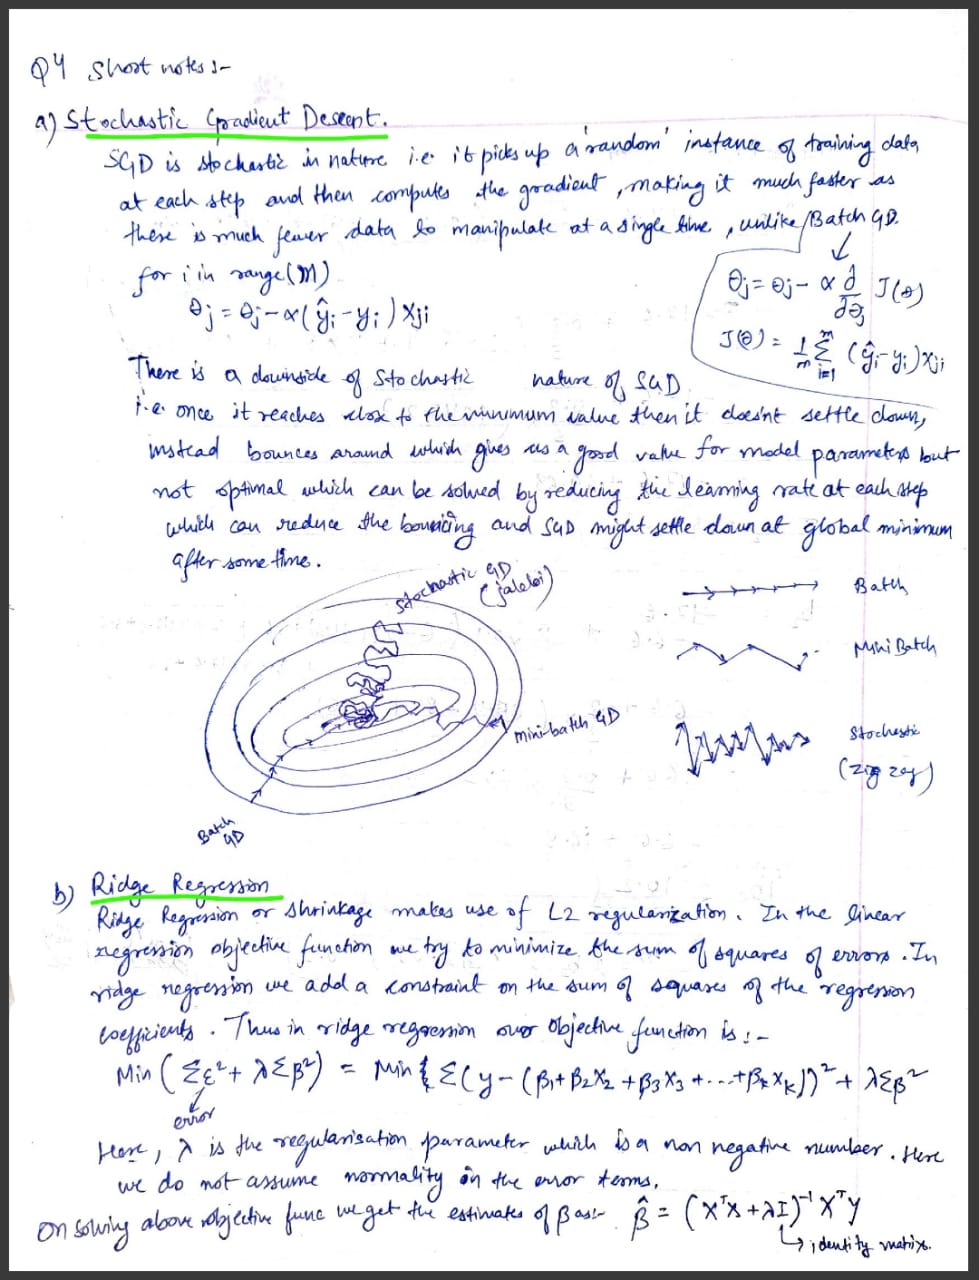 Q4 Short notes :-
a) Stochastic Gradient Descent.
SGD is stochastic in nature i.e. it picks up a 'random' instance of training data
at each step and then computes the gradient, making it much faster as
there is much fewer data to manipulate at a single time, unlike Batch GD.
for i in range(m)
θj = θj - α(ŷi - yi) xji
θj = θj - α ∂/∂θj J(θ)
J(θ) = 1/m Σ_{i=1}^{m} (ŷi - yi) xji
There is a downside of Stochastic nature of SGD
i.e. once it reaches close to the minimum value then it doesn't settle down,
instead bounces around which gives us a good value for model parameters but
not optimal which can be solved by reducing the learning rate at each step
which can reduce the bouncing and SGD might settle down at global minimum
after some time.
Stochastic GD
(jalebi)
mini-batch GD
Batch
GD
Batch
Mini Batch
Stochastic
(zig zag)
b) Ridge Regression
Ridge Regression or shrinkage makes use of L2 regularization. In the linear
regression objective function we try to minimize the sum of squares of errors. In
ridge regression we add a constraint on the sum of squares of the regression
coefficients. Thus in ridge regression our objective function is :-
Min (Σε² + λΣβ²) = Min { Σ(y - (β1 + β2X2 + β3X3 + ... + βkXk))² + λΣβ²
error
Here, λ is the regularisation parameter which is a non negative number. Here
we do not assume normality in the error terms.
On solving above objective func we get the estimates of β as:- β̂ = (XᵀX + λI)⁻¹ XᵀY
identity matrix.